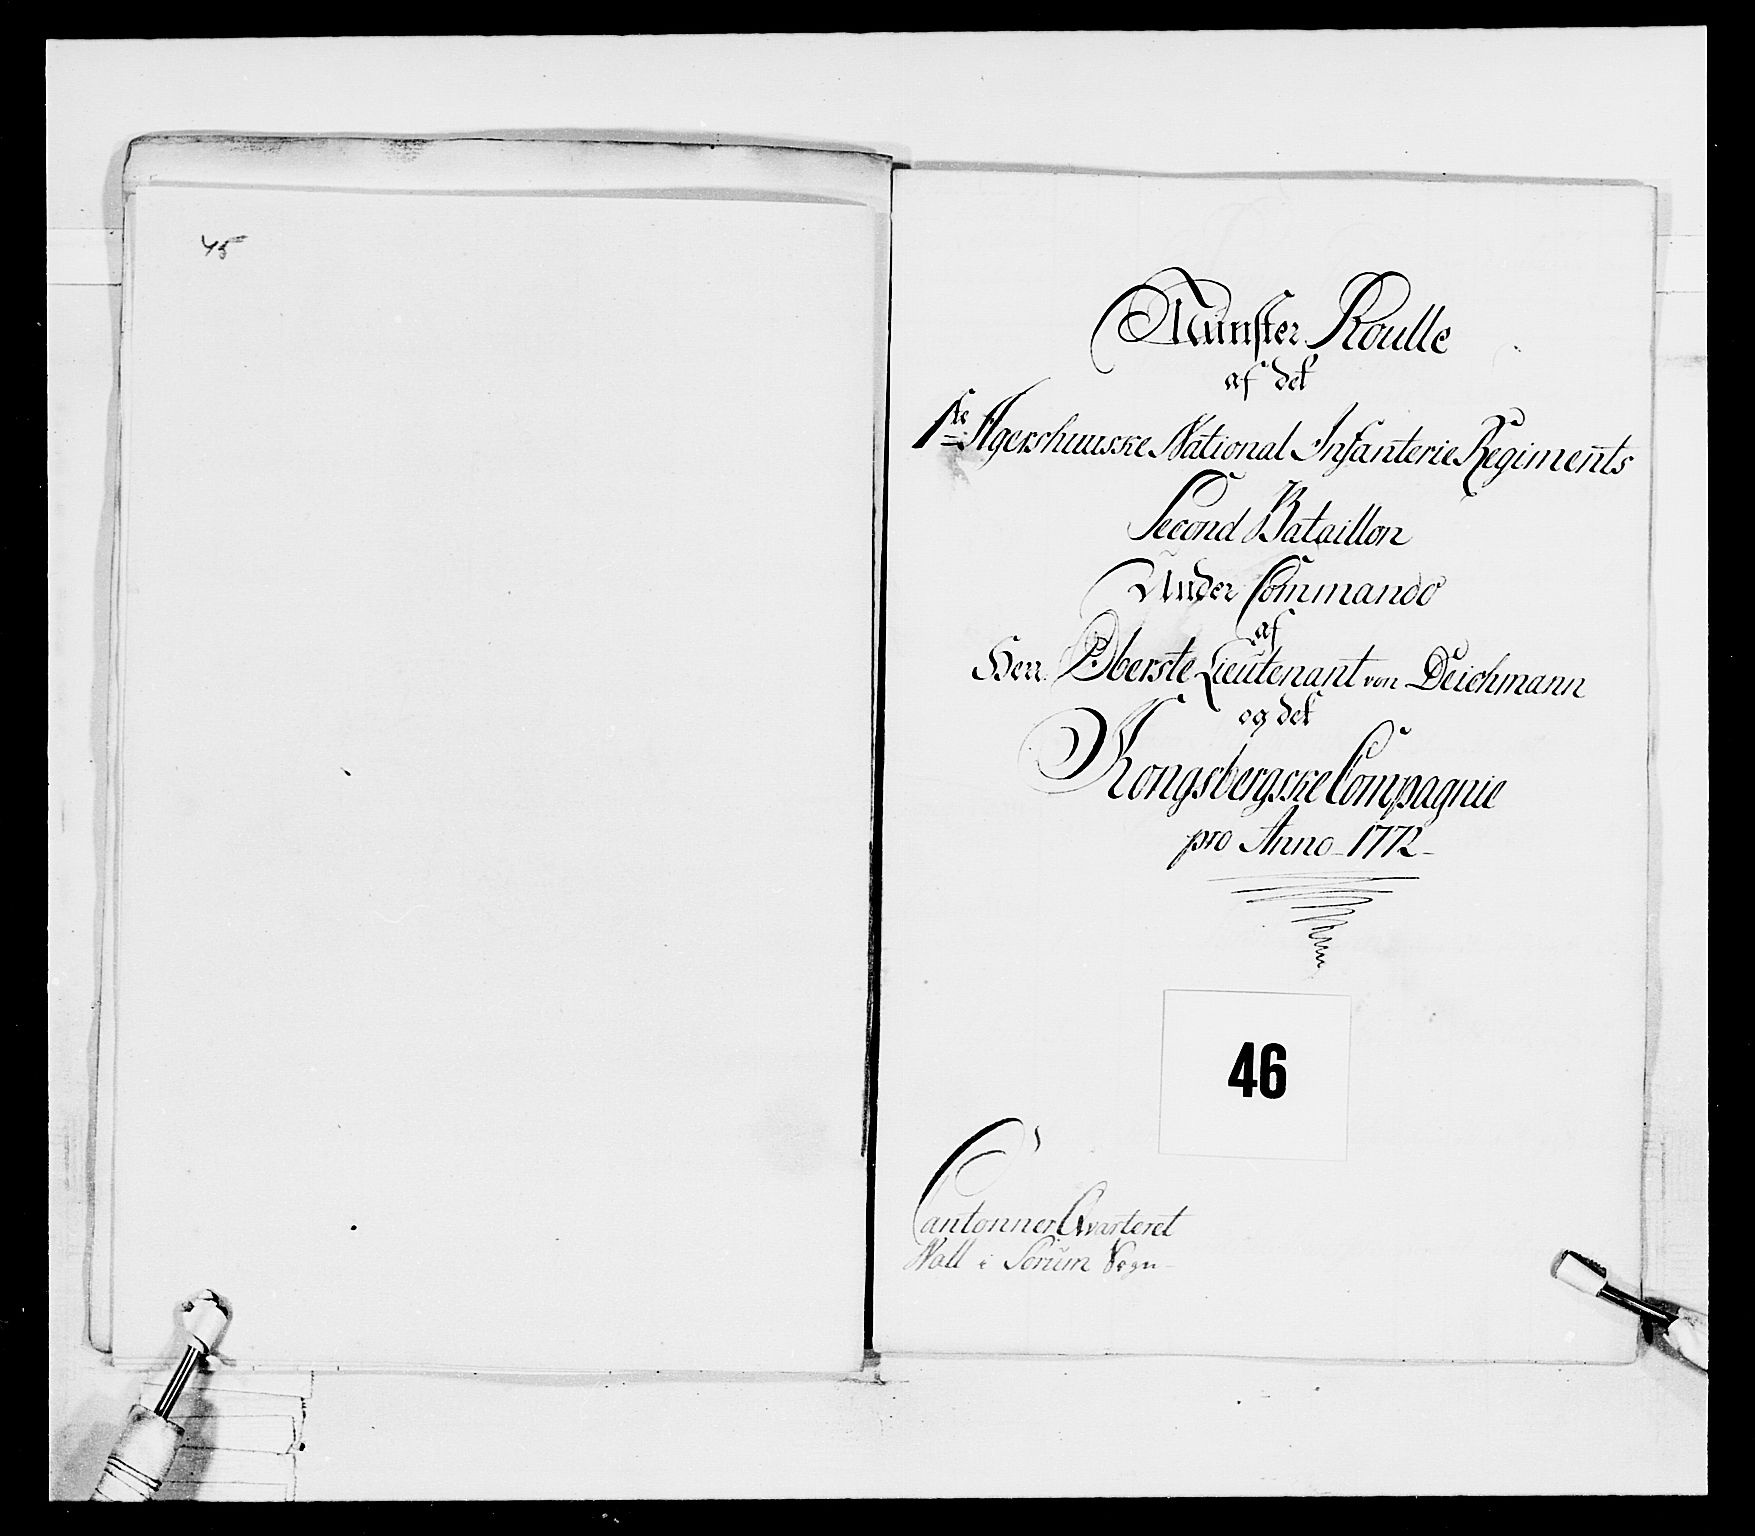 45
Munster Roulle
af det
1ste Agershuuske National Infanterie Regiments
Second Bataillon
Under Commando
af
Herr Oberste Lieutenant von Deichmann
og det
Kongsbergske Compagnie
pro Anno 1772
46
Cantonner Qvarteret
i Sørum